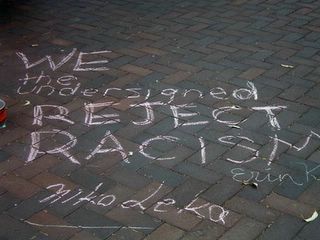 WE
the
undersigned
REJECT
RACISM
Erin K
Niko Leka